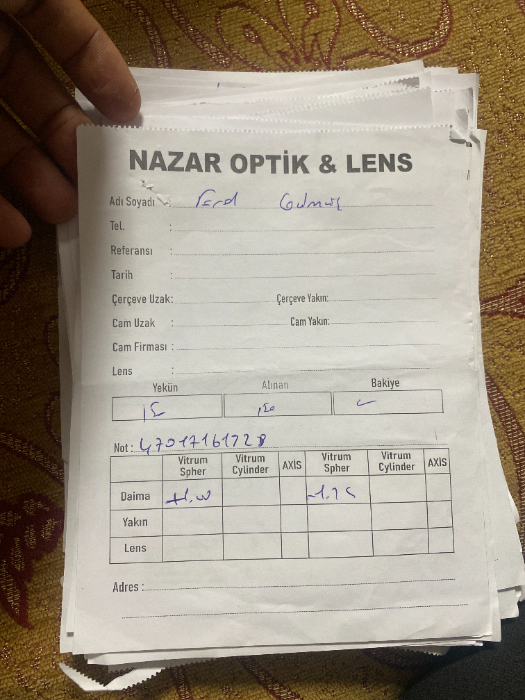 NAZAR OPTİK & LENS
Adı Soyadı :
Tel. :
Referansı :
Tarih :
Çerçeve Uzak: Çerçeve Yakın:
Cam Uzak : Cam Yakın:
Cam Firması :
Lens :
Yekün Alınan Bakiye
Not : 47017161728
Vitrum Spher Vitrum Cylinder AXİS Vitrum Spher Vitrum Cylinder AXİS
Daima
Yakın
Lens
Adres :